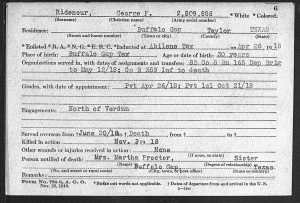 6
Ridenour, George F. 2,809,886 * White * Colored.
(Surname) (Christian name) (Army serial number)
Residence: Buffalo Gap Taylor TEXAS
(Street and house number) (Town or city) (County) (State)
* Enlisted * R. A. * N. G. * E. R. C. * Inducted at Abilene Tex Apr 26, 19 18
Place of birth: Buffalo Gap Tex Age or date of birth: 30 years
Organizations served in, with dates of assignments and transfers: 52 Co 8 Bn 165 Dep Brig
to May 12/18; Co B 359 Inf to death
Grades, with date of appointment: Pvt Apr 26/18; Pvt 1cl Oct 21/18
Engagements: North of Verdun
Served overseas from † June 20/18 to † Death, from † to †
Killed in action Nov. 2, 19 18
Other wounds or injuries received in action: None
Person notified of death: Mrs. Martha Proctor, Sister
(Name) (If none, so state) (Degree of relationship)
Buffalo Gap Texas
(No. and street or rural route) (City, town, or post office) (State or country)
Form No. 724-8, A. G. O. * Strike out words not applicable. † Dates of departure from and arrival in the U. S.
Nov. 22, 1919.